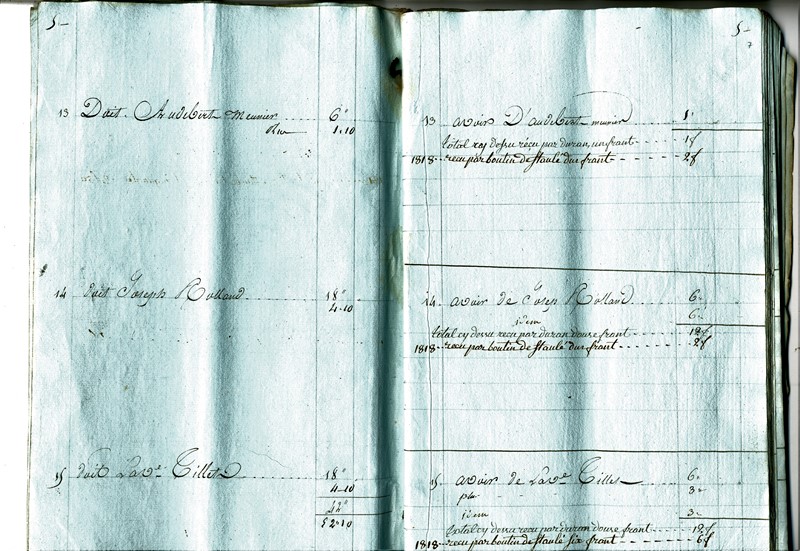 5-
13 Doit Audebert meunier 6"
Plus 1.10
14 doit Joseph Rolland 18"
4.10
15 doit La Ve Tilles 18"
4.10
42"
52.10
5-
7
13 avoir D'audebert meunier 1"
total dessu recu par duran un frant 1f
1818 recu par boutin de staulé dus frant 2f
14 avoir de Josep Rolland 6"
idem 6"
total cy dessu recu par duran douse frant 12f
1818 recu par boutin de staulé dus frant 2f
15 avoir de La Ve Tilles 6"
plu 3"
idem 3"
total cy dessu recu par duran douse frant 12f
1818 recu par boutin de staulé six frant 6f